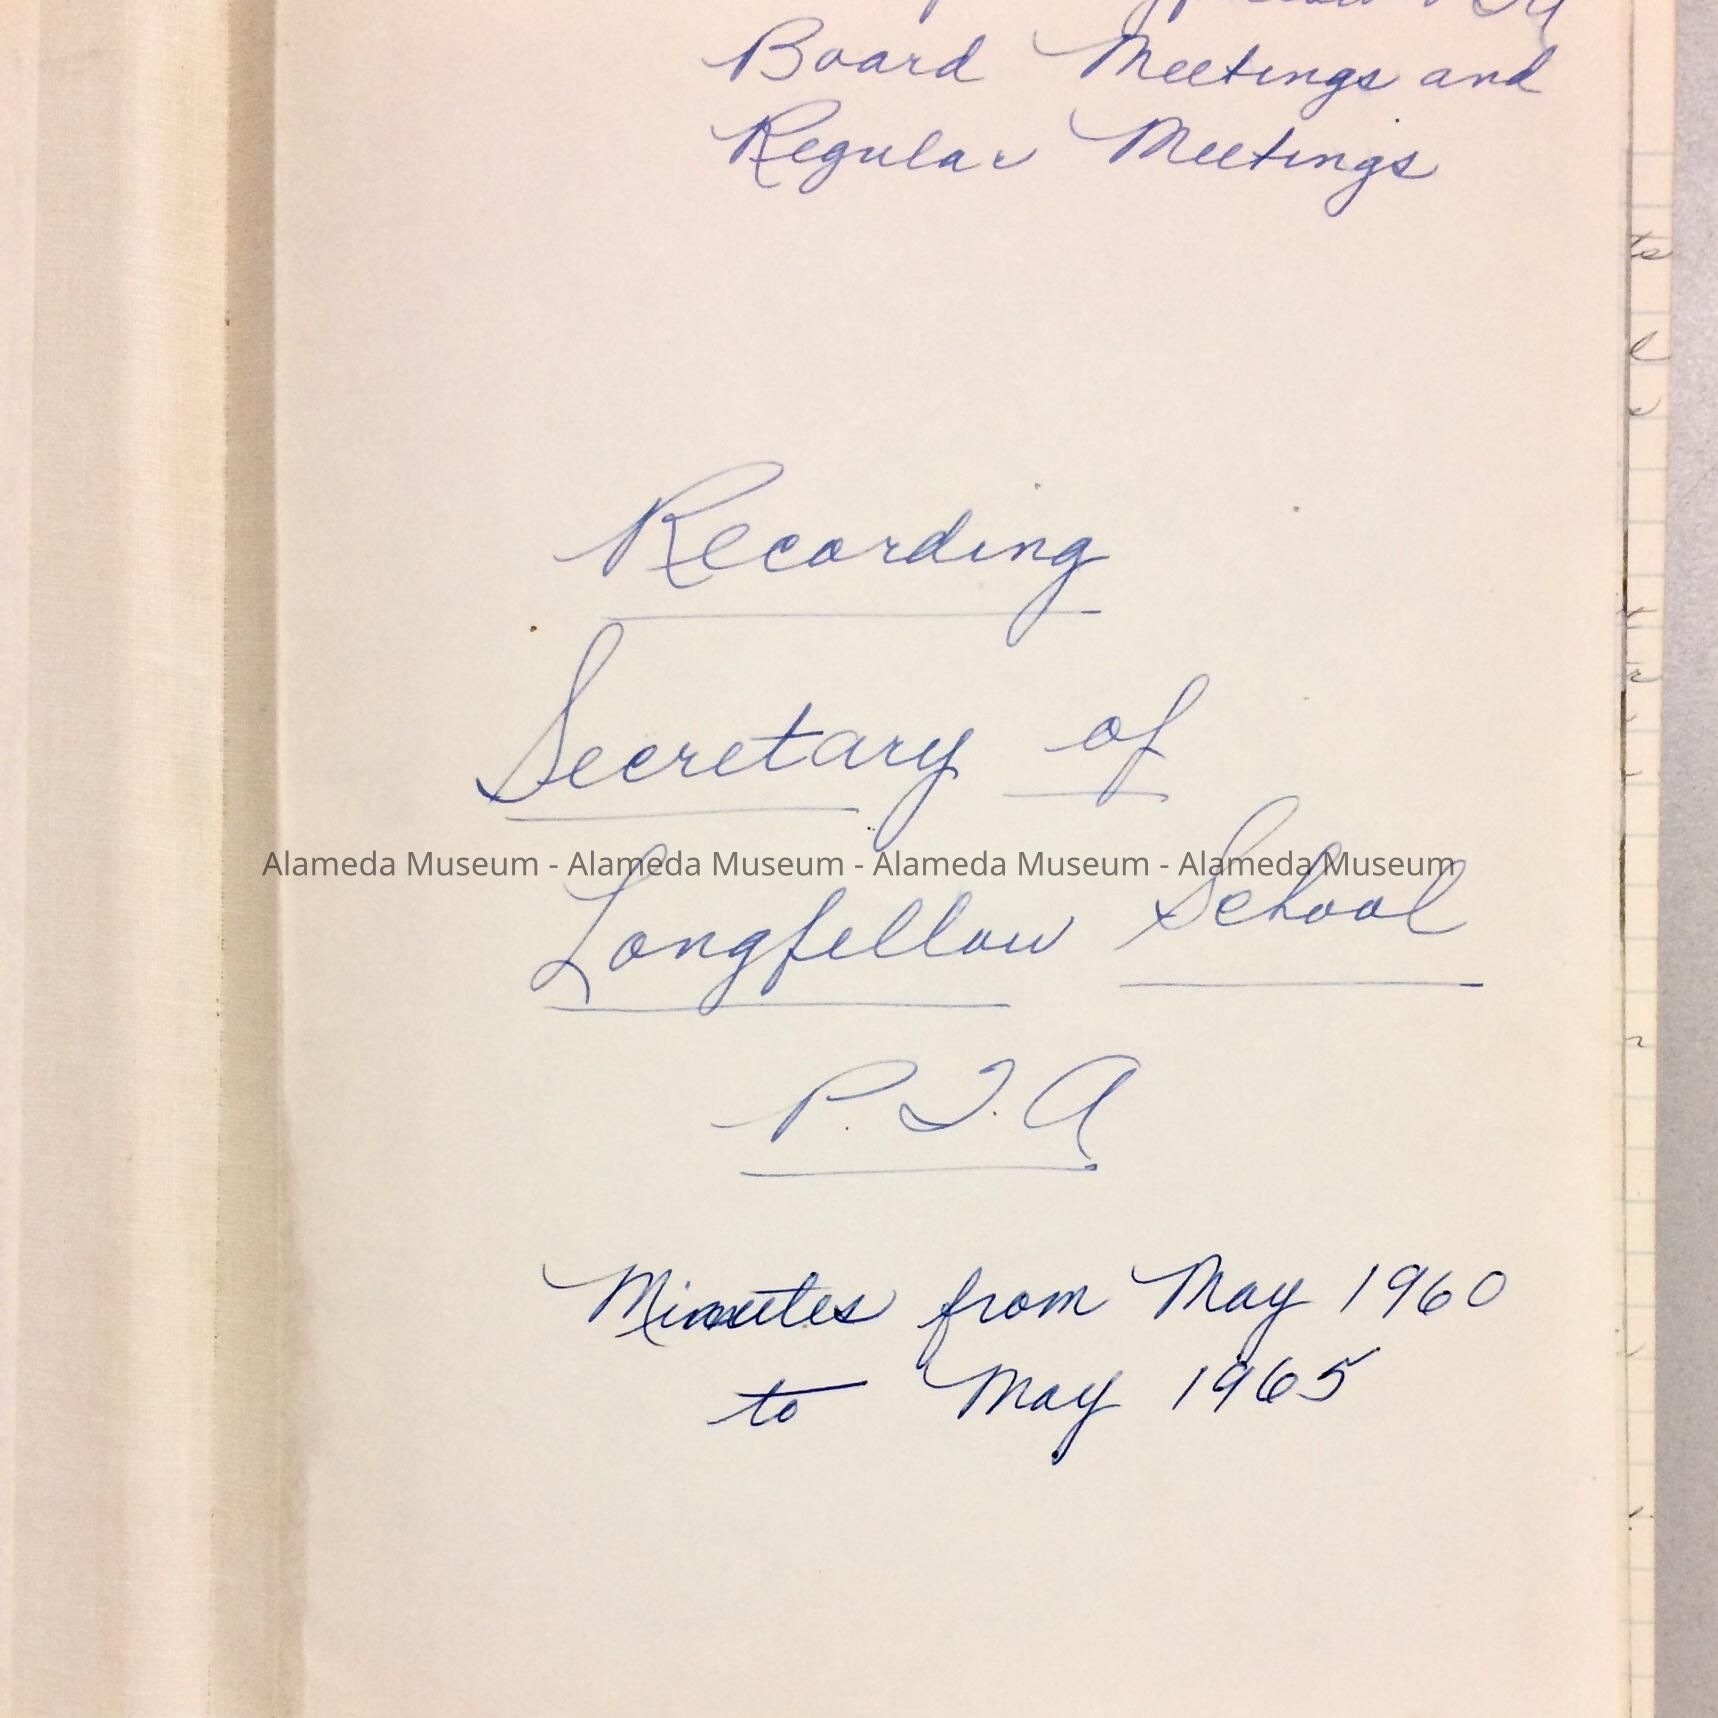 PTA
Board Meetings and
Regular Meetings
Recording
Secretary of
Alameda Museum - Alameda Museum - Alameda Museum - Alameda Museum
Longfellow School
P.T.A
Minutes from May 1960
to May 1965